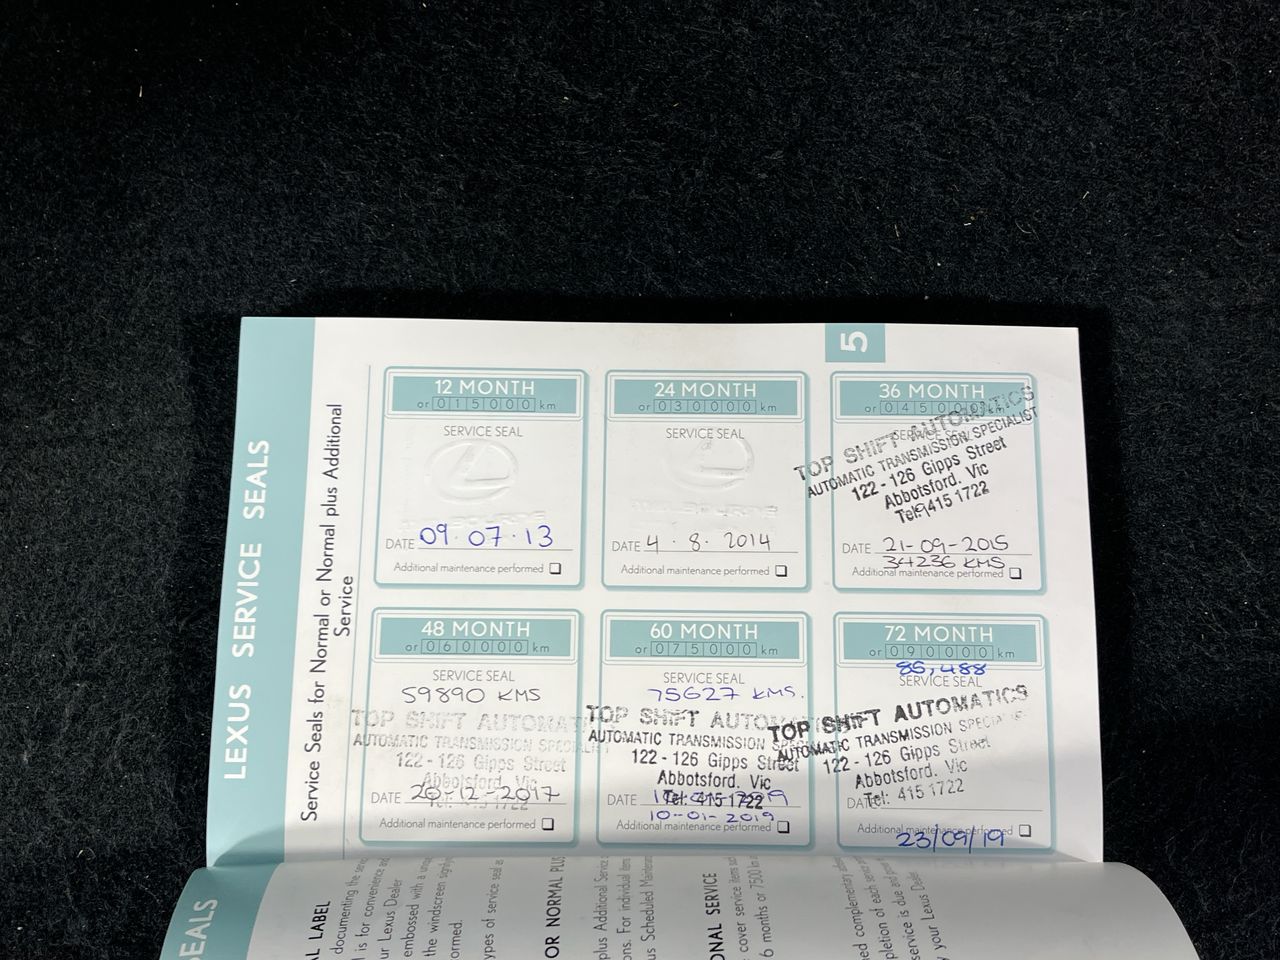 LEXUS SERVICE SEALS
Service Seals for Normal or Normal plus Additional
Service
5
12 MONTH
or 015000 km
SERVICE SEAL
DATE 09.07.13
Additional maintenance performed
24 MONTH
or 030000 km
SERVICE SEAL
DATE 4.8.2014
Additional maintenance performed
36 MONTH
or 045000 km
SERVICE SEAL
TOP SHIFT AUTOMATICS
AUTOMATIC TRANSMISSION SPECIALIST
122-126 Gipps Street
Abbotsford. Vic
Tel: 9415 1722
DATE 21-09-2015
34236 KMS
Additional maintenance performed
48 MONTH
or 060000 km
SERVICE SEAL
59890 KMS
TOP SHIFT AUTOMATICS
AUTOMATIC TRANSMISSION SPECIALIST
122-126 Gipps Street
Abbotsford. Vic
Tel: 415 1722
DATE 20-12-2017
Additional maintenance performed
60 MONTH
or 075000 km
SERVICE SEAL
75627 KMS.
TOP SHIFT AUTOMATICS
AUTOMATIC TRANSMISSION SPECIALIST
122-126 Gipps Street
Abbotsford. Vic
Tel: 415 1722
DATE
10-01-2019
Additional maintenance performed
72 MONTH
or 090000 km
85,488
SERVICE SEAL
TOP SHIFT AUTOMATICS
AUTOMATIC TRANSMISSION SPECIALIST
122-126 Gipps Street
Abbotsford. Vic
Tel: 415 1722
DATE
Additional maintenance performed
23/09/19
SEALS
LABEL
documenting the
is for convenience and
Lexus Dealer
embossed with a
the windscreen
types of service seal as
OR NORMAL PLUS
plus Additional Service
For individual items
Scheduled Maintenance
SERVICE
cover service items
6 months or 7500 km
complementary
of each service
service is due and
your Lexus Dealer